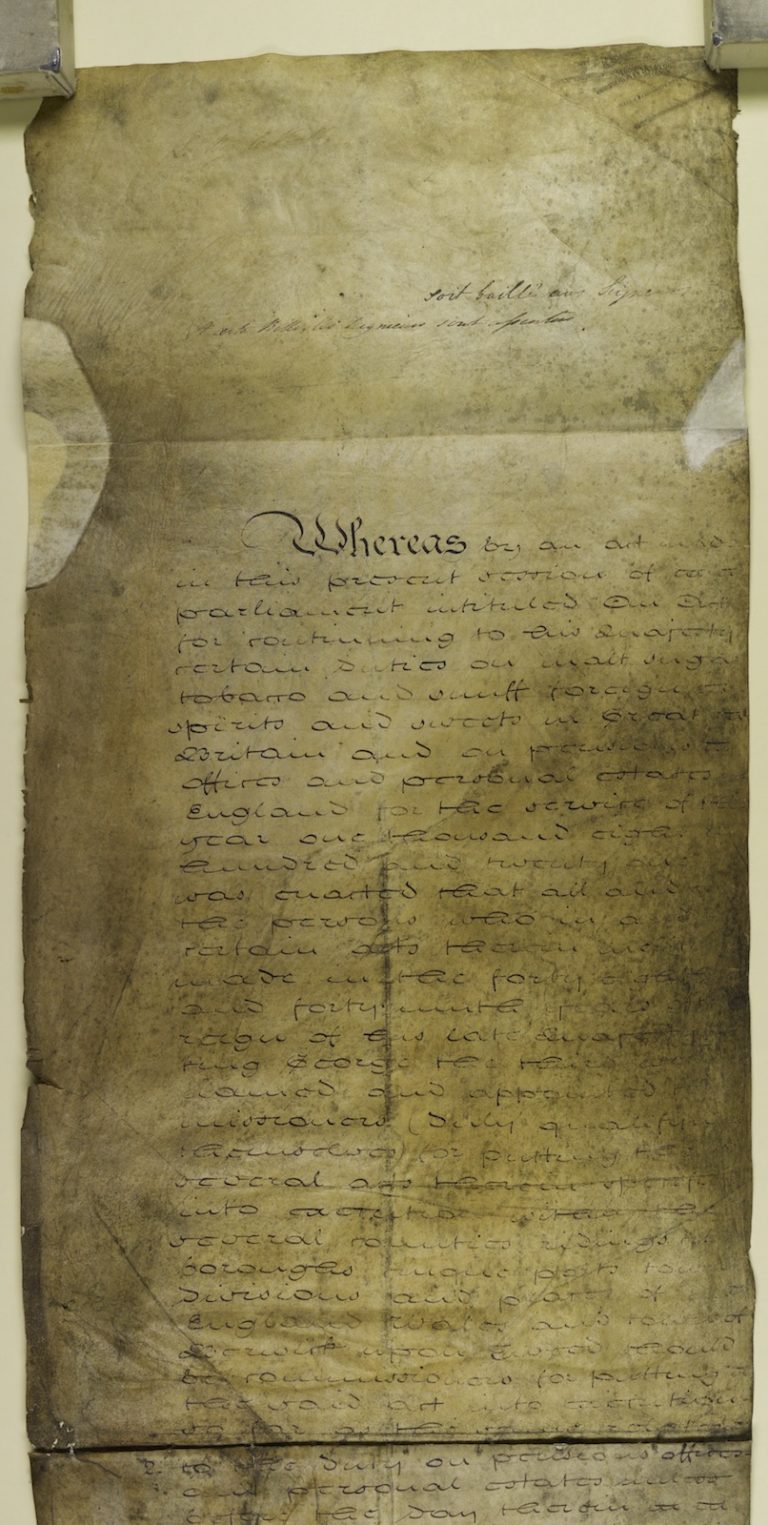 soit baillé aux Seigneurs
A cette Bille les Seigneurs sont assentus
Whereas by an act made
in this present session of
parliament intituled An Act
for continuing to his Majesty
certain duties on malt sugar
tobacco and snuff foreign
spirits and sweets in Great
Britain and on pensions
offices and personal estates
England for the service of the
year one thousand eight
hundred and twenty one
was enacted that all and
the persons who in and
certain acts therein
made in the forty eighth
and forty ninth years
reign of his late Majesty
King George the third
named and appointed
missioners (duly qualifying
themselves) for putting the
several acts therein
into execution within the
several counties ridings
boroughs cinque ports towns
divisions and places of
England Wales and town of
Berwick upon Tweed should
be commissioners for putting
the said act into execution
so far as the same related
to the duty on pensions offices
and personal estates unless
before the day therein